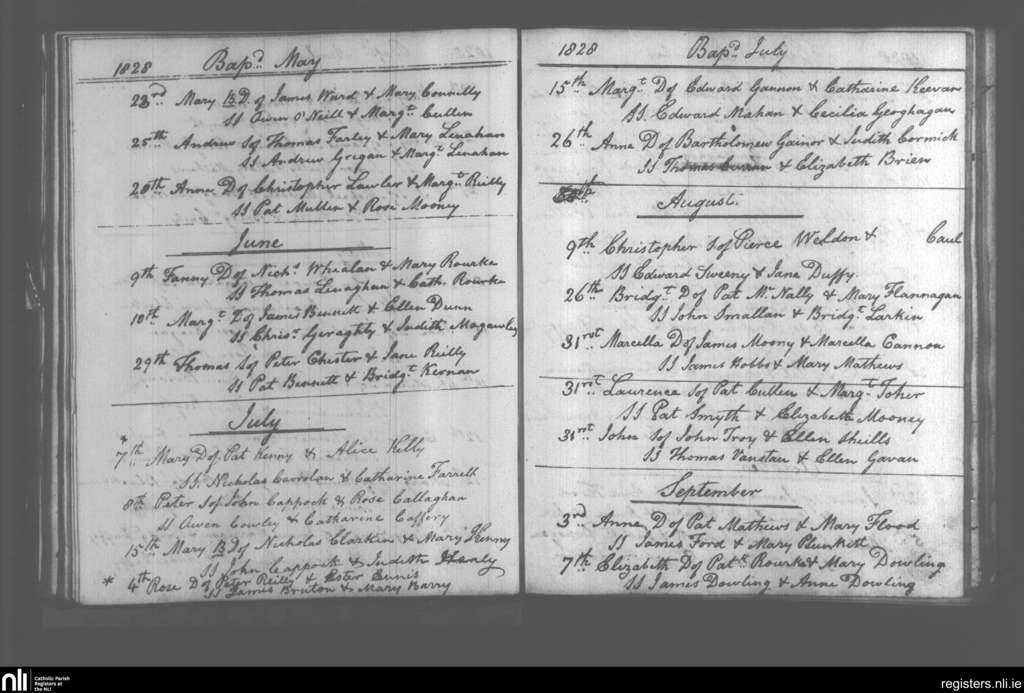 1828 Bapd. May
23rd Mary B.D. of James Ward & Mary Connilly
SS Owen O'Neill & Margt. Cullen
25th Andrew S of Thomas Farley & Mary Linahan
SS Andrew Gregan & Margt. Linahan
Anne D of Christopher Lawler & Margt. Reilly
SS Pat Mullen & Rose Mooney
June
9th Fanny D of Nichs. Whealan & Mary Rourke
SS Thomas Linaghan & Cath. Rourke
10th Margt. D of James Bennett & Ellen Dunn
SS Chrisr. Geraghty & Judith Magawley
29th Thomas S of Peter Chester & Jane Reilly
SS Pat Bennett & Bridgt. Kernan
July
* 7th Mary D of Pat Kenny & Alice Kelly
SS. Nicholas Carrolan & Catharine Farrell
8th Peter S of John Cappock & Rose Callaghan
SS Owen Cowley & Catharine Caffery
15th Mary B D of Nicholas Clarkin & Mary Kenny
SS John Cappock & Judith Hanly
* 4th Rose D of Peter Reilly & Ester Ennis
SS James Bruton & Mary Barry
1828 Bapd. July
15th Margt. D of Edward Gannon & Catharine Keevan
SS. Edward Mahan & Cecilia Geoghagan
26th Anne D of Bartholomew Gainor & Judith Cormick
SS Thomas & Elizabeth Brien
August.
9th Christopher S of Pierce Weldon & Caul
SS Edward Sweeny & Jane Duffy
26th Bridgt. D of Pat Mc. Nally & Mary Flannagan
SS John Smallan & Bridgt. Larkin
31rst Marcella D of James Moony & Marcella Cannon
SS James Hobbs & Mary Mathews
31rst Laurence S of Pat Cullen & Margt. Toher
SS Pat Smyth & Elizabeth Mooney
31rst John S of John Troy & Ellen Sheills
SS Thomas Vanstan & Ellen Gavan
September
3rd Anne D of Pat Mathews & Mary Flood
SS James Ford & Mary Plunkitt
7th Elizabeth D of Patk. Rourke & Mary Dowling
SS James Dowling & Anne Dowling
nli Catholic Parish
Registers at
the NLI
registers.nli.ie